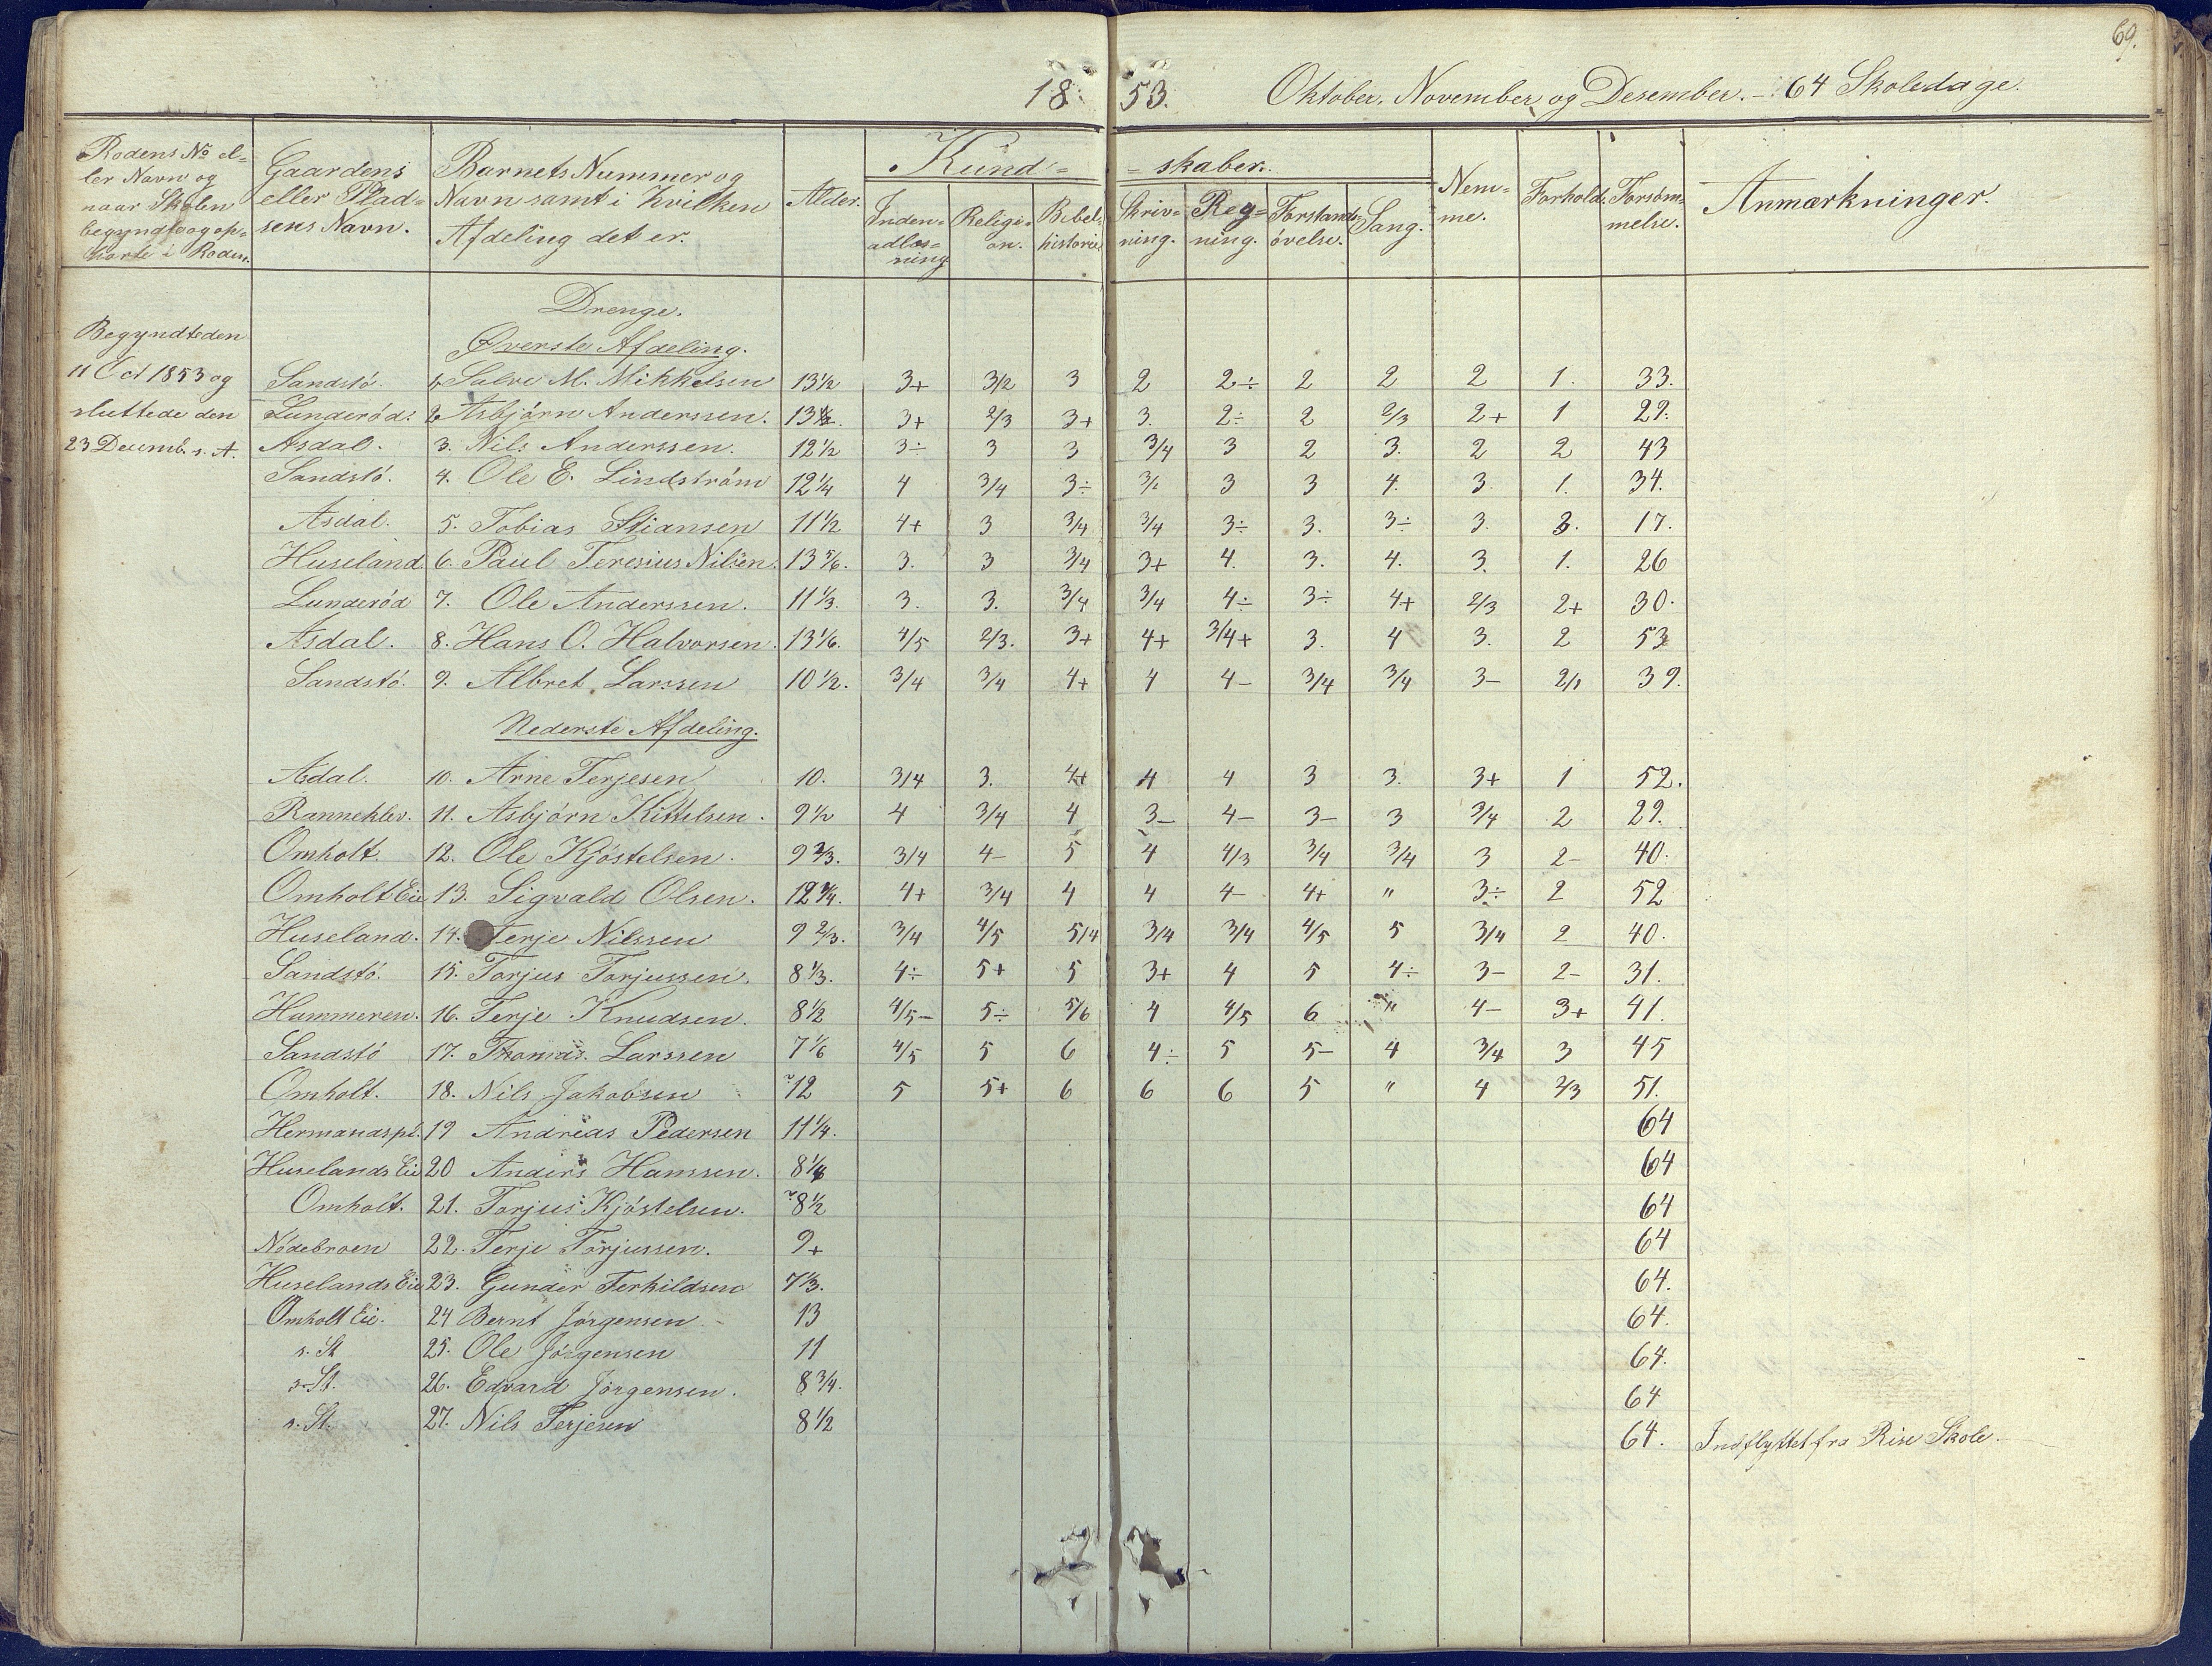 69.
18 53. Oktober, November og Desember. – 64 Skoledage.
Rodens No el=
ler Navn og
naar Skolen
begyndte og op=
hørte i Roden.
Gaardens
eller Plad=
sens Navn.
Barnets Nummer og
Navn samt i hvilken
Afdeling det er.
Alder.
Kund= =skaber.
Inden=
adlæs=
ning
Religi=
on.
Bibel=
historie
Skriv=
ning.
Reg=
ning.
Forstands=
øvelse.
Sang.
Nem=
me.
Forhold.
Forsøm=
melse.
Anmærkninger.
Drenge.
Øverste Afdeling.
Begyndte den
11 Oct 1853 og
sluttede den
23 Decemb. s. A.
Sandstö. 1. Salve M. Mikkelsen 13½ 3+ 3/2 3 2 2÷ 2 2 2 1. 33.
Lunderöd. 2. Asbjörn Anderssen. 13½. 3+ 2/3 3+ 3. 2÷ 2 2/3 2+ 1 29.
Asdal. 3. Nils Anderssen. 12½ 3÷ 3 3 3/4 3 2 3. 2 2 43
Sandstö. 4. Ole E. Lindström 12¼ 4 3/4 3÷ 3/2 3 3 4. 3. 1. 34.
Asdal. 5. Tobias Stiansen 11½ 4+ 3 3/4 3/4 3÷ 3. 3÷ 3. 3. 17.
Huseland 6. Paul Teresius Nilsen. 13 5/6. 3. 3 3/4 3+ 4. 3. 4. 3. 1. 26
Lunderöd 7. Ole Anderssen. 11⅓. 3. 3. 3/4 3/4 4÷ 3÷ 4+ 2/3 2+ 30.
Asdal. 8. Hans O. Halvorsen. 13 1/6. 4/5 2/3. 3+ 4+ 3/4+ 3. 4 3. 2 53
Sandstö. 9. Albret Larssen 10½. 3/4 3/4 4+ 4 4– 3/4 3/4 3– 2/1 39.
Nederste Afdeling.
Asdal. 10. Arne Terjesen 10. 3/4 3. 4+ 4 4 3 3. 3+ 1 52.
Ranneklev. 11. Asbjörn Kittelsen. 9½ 4 3/4 4 3– 4– 3– 3 3/4 2 29.
Omholt. 12. Ole Kjöstelsen. 9⅔. 3/4 4– 5 4 4/3 3/4 3/4 3 2– 40.
Omholt Eie 13. Sigvald Olsen. 12¾. 4+ 3/4 4 4 4– 4+ " 3÷ 2 52
Huseland. 14. Terje Nilssen 9⅔. 3/4 4/5 5/4 3/4 3/4 4/5 5 3/4 2 40.
Sandstö. 15. Torjus Torjussen. 8⅓. 4÷ 5+ 5 3+ 4 5 4÷ 3– 2– 31.
Hammeren. 16. Terje Knudsen. 8½ 4/5– 5÷ 5/6 4 4/5 6 " 4– 3+ 41.
Sandstö 17. Thomas Larssen 7 1/6 4/5 5 6 4÷ 5 5– 4 3/4 3 45
Omholt. 18. Nils Jakobsen 12 5 5+ 6 6 6 5 " 4 2/3 51.
Hermanspl. 19 Andreas Pedersen 11¼. 64
Huselands Eie 20 Anders Hanssen. 64
Omholt. 21. Torjus Kjöstelsen. 8½ 64
Nödebroen 22. Terje Torjussen. 9+ 64
Huselands Eie 23. Gunder Terkildsen 7⅓. 64.
Omholt Eie. 24 Bernt Jörgensen 13 64.
s. St 25. Ole Jörgensen 11 64.
s. St. 26. Edvard Jörgensen. 8¾. 64
s. St. 27. Nils Terjesen 8½ 64. Indflyttet fra Rise Skole.